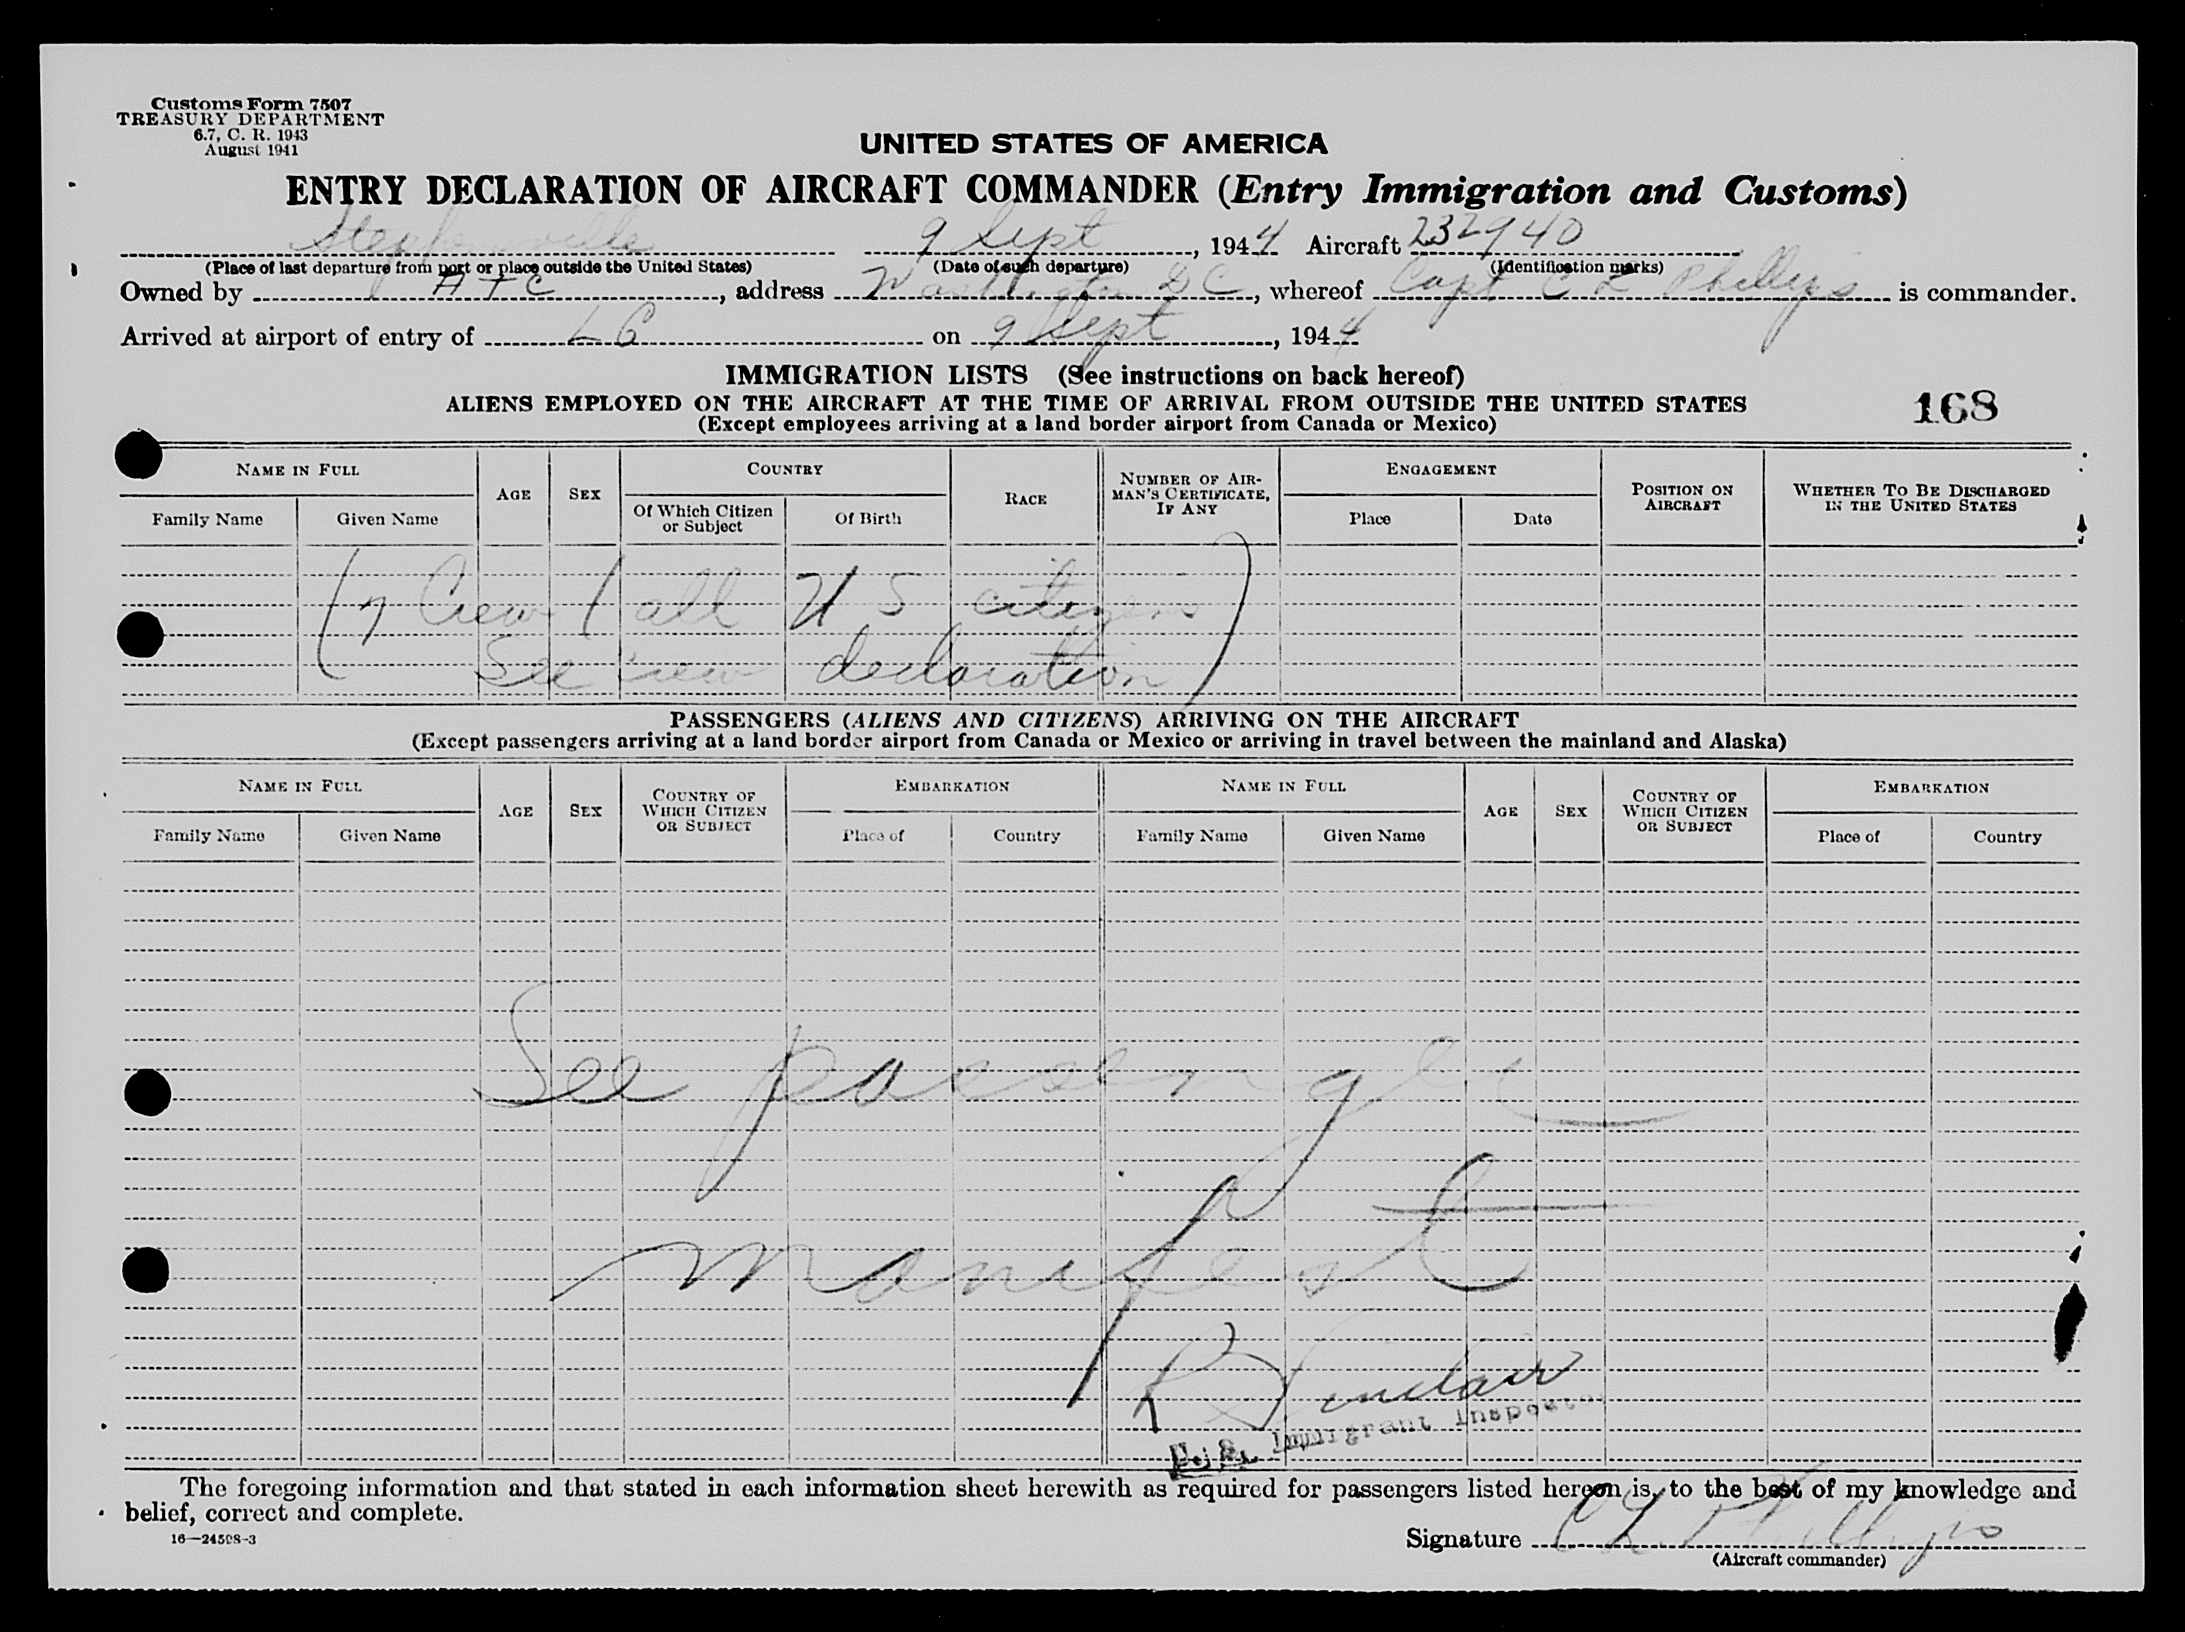 Customs Form 7507
TREASURY DEPARTMENT
6.7, C. R. 1943
August 1941
UNITED STATES OF AMERICA
ENTRY DECLARATION OF AIRCRAFT COMMANDER (Entry Immigration and Customs)
Stephenville 9 Sept, 1944 Aircraft 232940
(Place of last departure from port or place outside the United States) (Date of such departure) (Identification marks)
Owned by ATC, address Washington DC, whereof Capt C L Phillips is commander.
Arrived at airport of entry of LG on 9 Sept, 1944
IMMIGRATION LISTS (See instructions on back hereof)
ALIENS EMPLOYED ON THE AIRCRAFT AT THE TIME OF ARRIVAL FROM OUTSIDE THE UNITED STATES
168
(Except employees arriving at a land border airport from Canada or Mexico)
NAME IN FULL AGE SEX COUNTRY RACE NUMBER OF AIRMAN'S CERTIFICATE, IF ANY ENGAGEMENT POSITION ON AIRCRAFT WHETHER TO BE DISCHARGED IN THE UNITED STATES
Family Name Given Name Of Which Citizen or Subject Of Birth Place Date
(7 Crew (all U S citizens
See crew declaration)
PASSENGERS (ALIENS AND CITIZENS) ARRIVING ON THE AIRCRAFT
(Except passengers arriving at a land border airport from Canada or Mexico or arriving in travel between the mainland and Alaska)
NAME IN FULL AGE SEX COUNTRY OF WHICH CITIZEN OR SUBJECT EMBARKATION NAME IN FULL AGE SEX COUNTRY OF WHICH CITIZEN OR SUBJECT EMBARKATION
Family Name Given Name Place of Country Family Name Given Name Place of Country
See passenger
manifest
R Sinclair
U. S. Immigrant Inspector
The foregoing information and that stated in each information sheet herewith as required for passengers listed hereon is, to the best of my knowledge and
belief, correct and complete.
16—24598-3
Signature C L Phillips
(Aircraft commander)